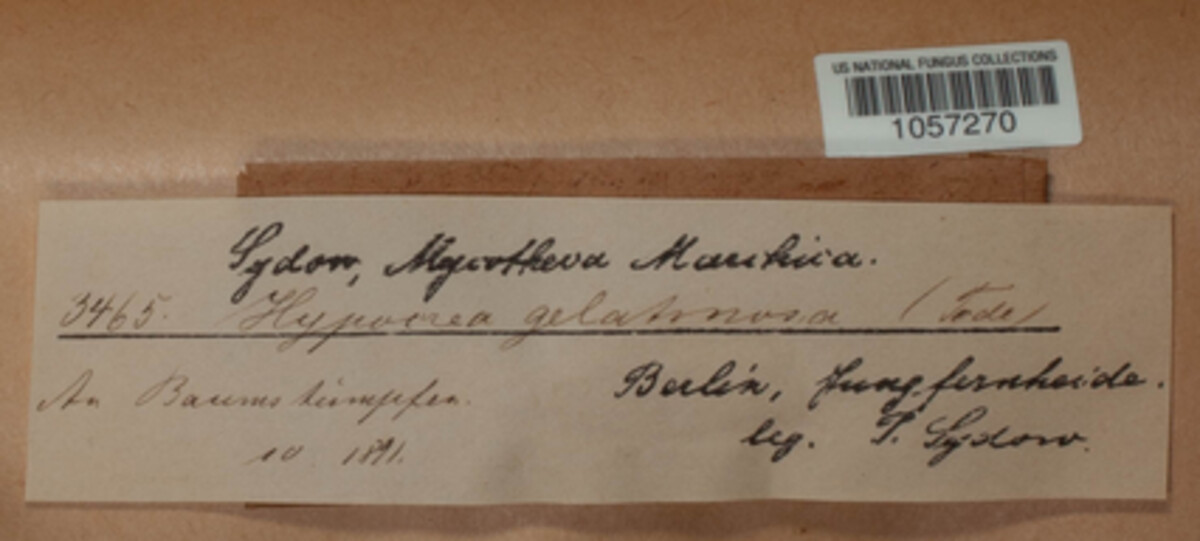 US NATIONAL FUNGUS COLLECTIONS
1057270
Sydow, Mycotheca Marchica.
3465. Hypocrea gelatinosa (Tode)
An Baumstümpfen.
10 1891.
Berlin, Jungfernheide.
leg. P. Sydow.